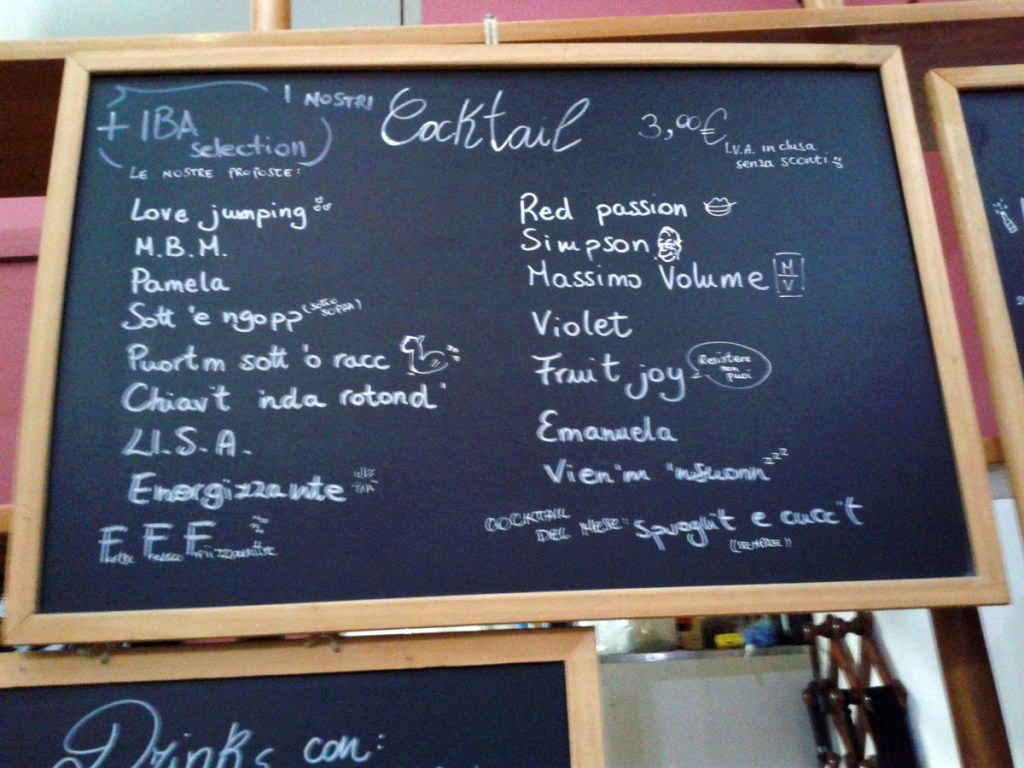 I NOSTRI Cocktail
+ IBA
selection
3,00€
I.V.A. inclusa
senza sconti
LE NOSTRE PROPOSTE:
Love jumping
M.B.M.
Pamela
Sott 'e ngopp (SOTTO
SOPRA)
Puortm sott 'o racc
Chiav't inda rotond'
LI.S.A.
Energizzante
F F F
Red passion
Simpson
Massimo Volume M
V
Violet
Fruit joy Resistere
non
puoi
Emanuela
Vien'm 'nsuonn zzz
COCKTAIL
DEL MESE: Spuogl't e cucc't
Drinks con: